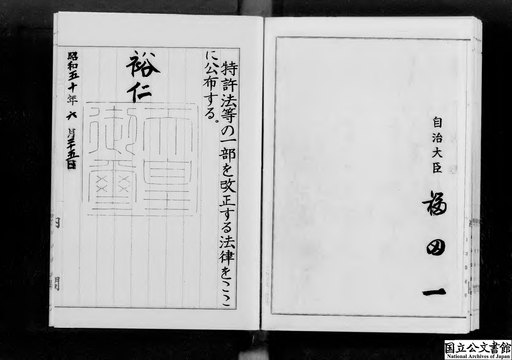 自治大臣
福田一
特許法等の一部を改正する法律をここ
に公布する。
裕仁
天皇
御璽
昭和五十年六月二十五日
国立公文書館
National Archives of Japan